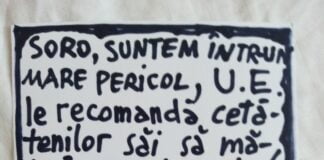 SORO, SUNTEM ÎNTR-UN
MARE PERICOL, U.E.
le recomandă cetă-
ţenilor săi să mă-